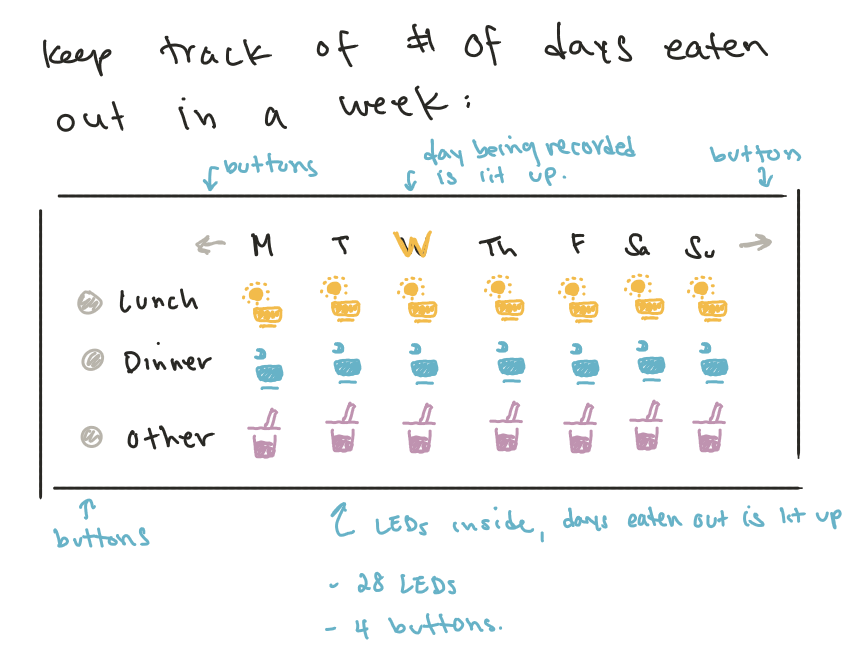 keep track of # of days eaten
out in a week:
buttons
day being recorded
is lit up.
button
M T W Th F Sa Su
Lunch
Dinner
other
buttons
LEDs inside, days eaten out is lit up
- 28 LEDs
- 4 buttons.